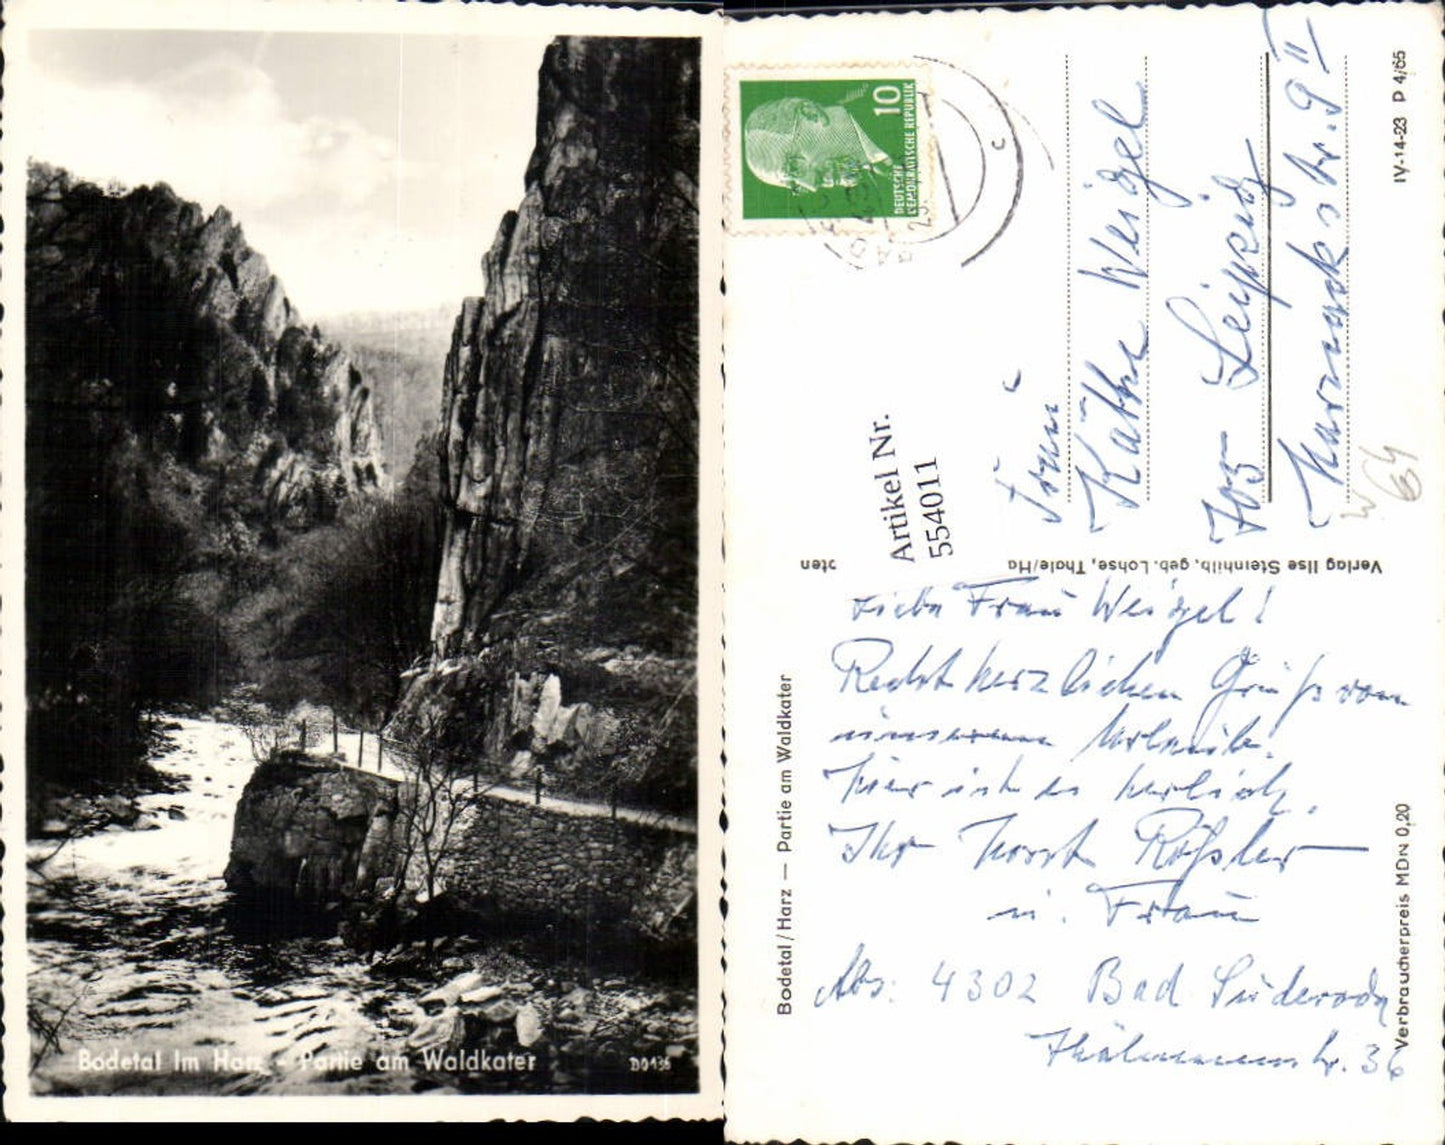 Bodetal im Harz - Partie am Waldkater
D0136
10
DEUTSCHE
DEMOKRATISCHE REPUBLIK
Artikel Nr.
554011
Frau
Käthe Weigel
703 Leipzig
str. 9 II
IV-14-23 P 4/65
W 64
Verlag Ilse Steinhilb, geb. Lohse, Thale/Ha
Bodetal/Harz — Partie am Waldkater
Verbraucherpreis MDN 0,20
Liebe Frau Weigel!
Recht herzlichen Gruß vom
unserem Urlaub.
Hier ist es herrlich.
Ihr Horst Rößler
u. Frau
Abs: 4302 Bad Suderode
Thälmannstr. 36